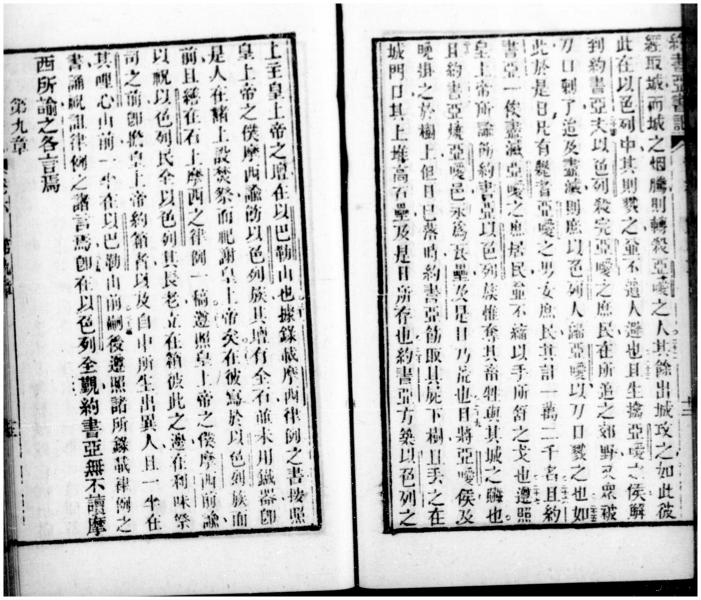 約書亞書記
經取城而城之烟騰則轉殺亞嗳之人其餘出城攻之如此彼
此在以色列中其則擊之並不遺人避也且生擒亞嗳之侯解
到約書亞夫以色列殺完亞嗳之庶民在所追之郊野又衆被
刀口剿了追及盡滅則庶以色列人歸亞嗳以刀口擊之也如
此於是日凡有斃者亞嗳之男女庶民其計一萬二千名且約
書亞一俟盡滅亞嗳之庶居民並不縮以手所之戈也遵照
皇上帝所諭飭約書亞以色列族惟奪其畜牲與其城之贓也
且約書亞燒亞嗳邑永為瓦壘及是日乃荒也且將亞嗳侯及
晚掛之於樹上但日已落時約書亞飭取其屍下樹且丟之在
城門口其上堆高石壘及是日所存也約書亞方築以色列之
上主皇上帝之壇在以巴勒山也據錄載摩西律例之書按照
皇上帝之僕摩西諭飭以色列族其壇有全石並未用鐵器即
是人在壇上設焚祭而祀謝皇上帝矣在彼寫於以色列族面
前且繕在石上摩西之律例一稿遵照皇上帝之僕摩西前諭
以祝以色列民全以色列其長老立在箱彼此之邊在利味祭
司之前即擔皇上帝約箱者以及自中所生出異人且一半在
其哩心山前一半在以巴勒山前嗣後遵照諸所錄載律例之
書誦祝詛律例之諸言焉即在以色列全觀約書亞無不讀摩
西所諭之各言焉
第九章